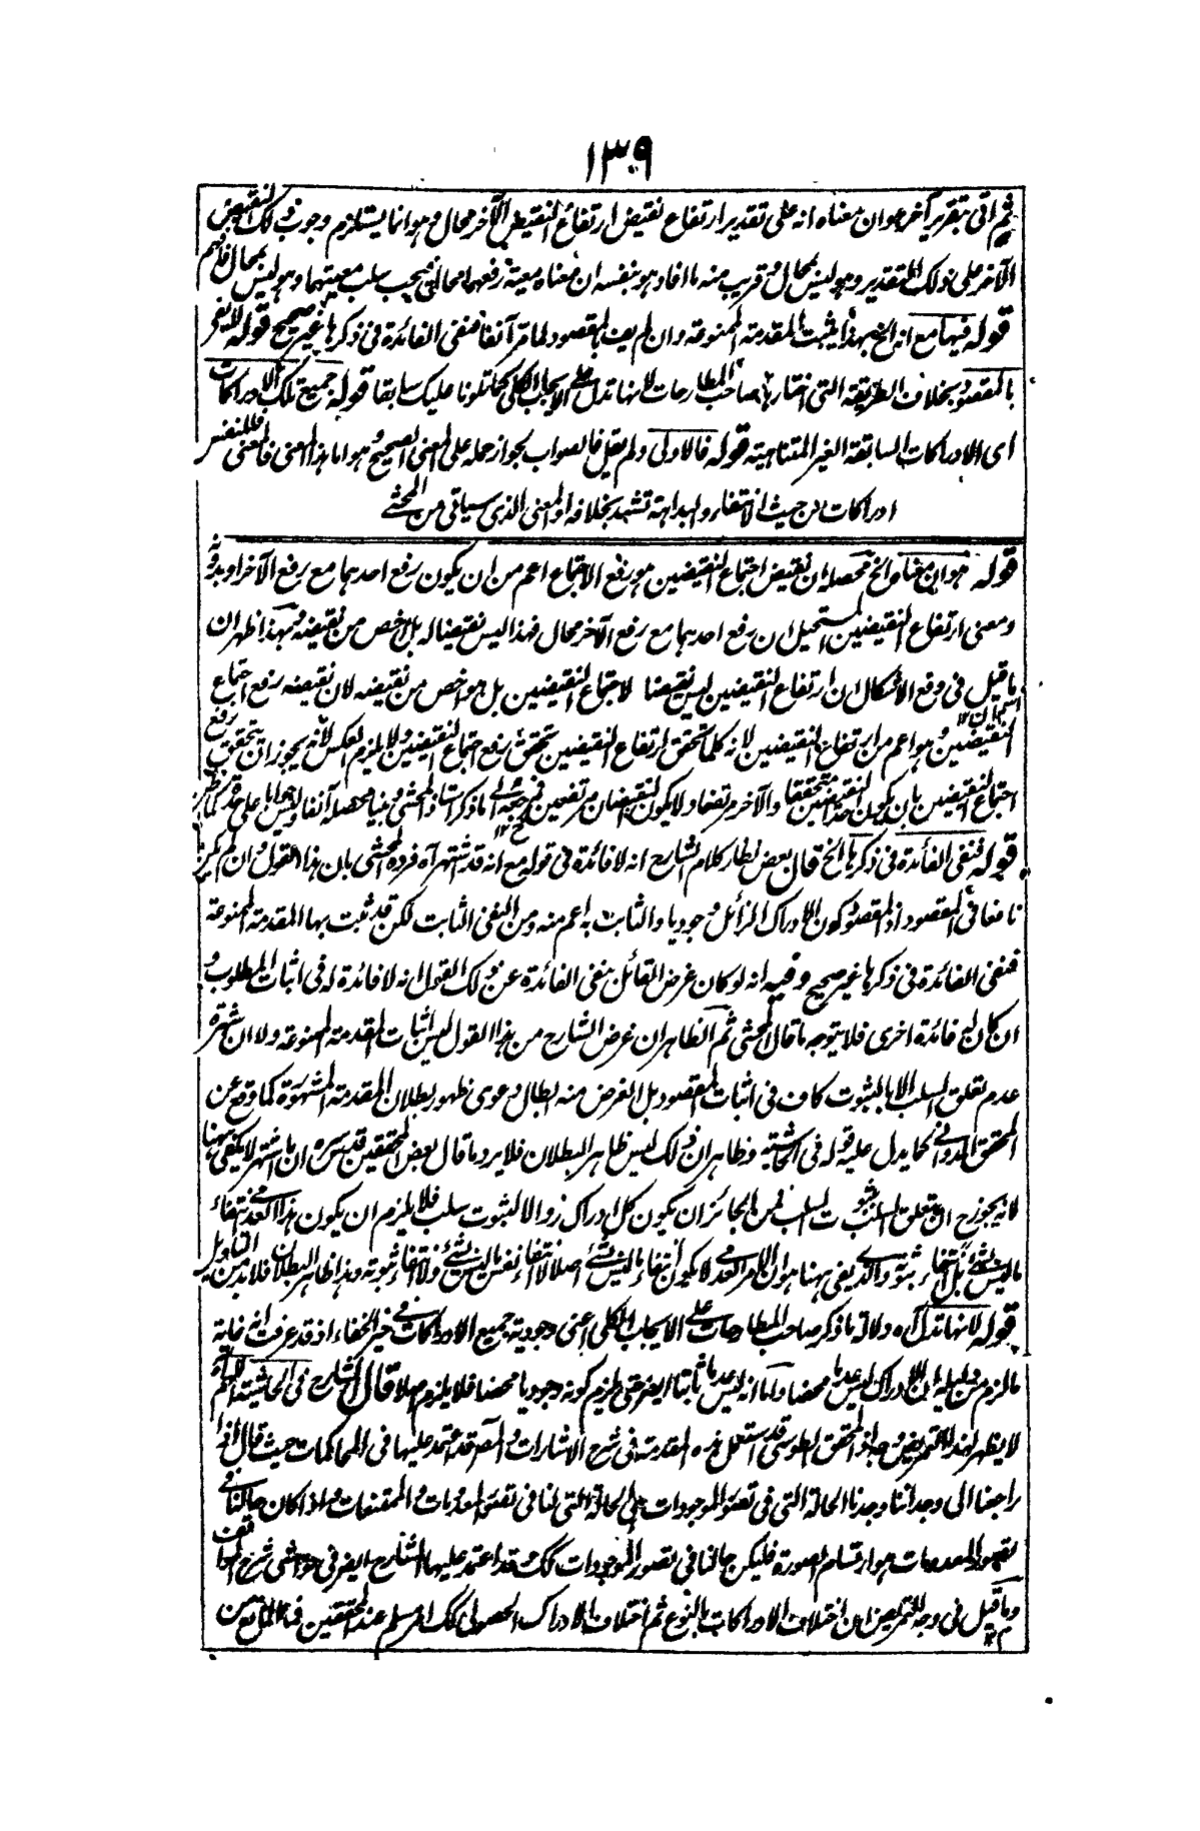 ١٣٩
ثم اتى بتقرير آخر هو ان معناه انه على تقدير ارتفاع نقيض ارتفاع النقيض الآخر محال وهو انما يستلزم وجوب ذلك النقيض
الآخر على ذلك التقدير وهو ليس بمحال و قريب منه ما افاد هو بنفسه ان معناه معية رفعهما محال فيجب سلب معيتهما وهو ليس بمحال فافهم
قوله فيها مع انه الخ بهذا يثبت المقدمة الممنوعة وان لم يعن المقصود لما مر آنفا فنفى الفائدة فى ذكرها غير صحيح قوله
بالمقصود بخلاف الطريقة التى اختارها صاحب المطارحات لانها تدل على الايجاب الكلى كما تلونا عليك سابقا قوله جميع تلك الادراكات
اى الادراكات السابقة الغير المتناهية قوله فالاولى ولم يقل فالصواب لجواز حمله على المعنى الصحيح وهو اما هذا المعنى فالمعنى فللنفس
ادراكات من حيث الانتفاء والبداهة تشهد بخلافه او المعنى الذى سياتى من المحشى
قوله هو ان معناه الخ محصله ان نقيض اجتماع النقيضين هو رفع الاجتماع اعم من ان يكون رفع احدهما مع رفع الآخر او بدونه
ومعنى ارتفاع النقيضين المستحيل ان رفع احدهما مع رفع الآخر محال فهذا ليس نقيضا له بل اخص من نقيضه وبهذا ظهر ان
ما قيل فى دفع الاشكال ان ارتفاع النقيضين ليس نقيضا لاجتماع النقيضين بل هو اخص من نقيضه لان نقيضه رفع اجتماع
النقيضين وهو اعم من ارتفاع النقيضين لانه كلما تحقق ارتفاع النقيضين تحقق رفع اجتماع النقيضين ولا يلزم العكس لانه يجوز ان يتحقق رفع
اجتماع النقيضين بان يكون احد النقيضين متحققا والآخر مرتفعا ولا يكون النقيضان مرتفعين فيه
قوله فنفى الفائدة فى ذكرها الخ قال بعض نظار كلام الشارح انه لا فائدة فى قوله مع انه قد اشتهر آه فرده المحشى بان هذا القول وان لم يكن
نافعا فى المقصود اذ المقصود كون الادراك الزائل وجوديا والثابت به اعم منه ومن النفى الثابت لكن قد ثبت بها المقدمة الممنوعة
فنفى الفائدة فى ذكرها غير صحيح وفيه انه لو كان غرض القائل بنفى الفائدة عن ذلك القول انه لا فائدة له فى اثبات المطلوب و
ان كان له فائدة اخرى فلا يتوجه ما قال المحشى ثم الظاهر ان غرض الشارح من هذا القول ليس اثبات المقدمة الممنوعة ولا ان شهرة
عدم تعلق السلب الا بالثبوت كاف فى اثبات المقصود بل الغرض منه ابطال دعوى ظهور بطلان المقدمة المشهورة كما وقع عن
المحقق الدوانى كما يدل عليه قوله فى الحاشية وظاهر ان ذلك ليس ظاهر البطلان فلا يرد ما قال بعض المحققين قدس سره ان ما اشتهر لا يكفى ههنا
لانه يجوز ح ان يتعلق السلب بثبوت السلب فمن الجائز ان يكون كل ادراك زوالا لثبوت سلب فلا يلزم ان يكون هذا العدمى انتفاء
ما ليس بشئ بل انتفاء ثبوته والذى يفى ههنا هو ان الامر العدمى لا يكون انتفاء ما ليس بشئ اصلا لا انتفاء نفس ما ليس بشئ ولا انتفاء ثبوته وهذا ظاهر البطلان فلا بد من التاويل
قوله لانها تدل آه دلالة ما ذكر صاحب المطارحات على الايجاب الكلى اعنى وجودية جميع الادراكات فى حيز الخفاء اذ قد عرفت انه غاية
ما لزم من دليله ان الادراك ليس عدما محضا واما انه ليس عدما ثابتا ايضا حتى يلزم كونه وجوديا محضا فلا يلزم اصلا قال الشارح فى الحاشية
لا يظهر لهذا التمريض وجه اذ المحقق الطوسى قد استعمل هذه المقدمة فى شرح الاشارات و قد اعتمد عليها فى المحاكمات حيث قال اذا
راجعنا الى وجداننا وجدنا الحالة التى فى تصور الموجودات هى الحالة التى لنا فى تصور المعدومات والممتنعات واذا كان حالنا فى
تصور المعدومات هو ارتسام الصورة فليكن حالنا فى تصور الموجودات كذلك وقد اعتمد عليها الشارح ايضا فى حواشى شرح المواقف
وما قيل فى وجه التمريض ان اختلاف الادراكات بالنوع ثم اختلاف الادراك الحصولى كذلك امر مسلم عند المحققين